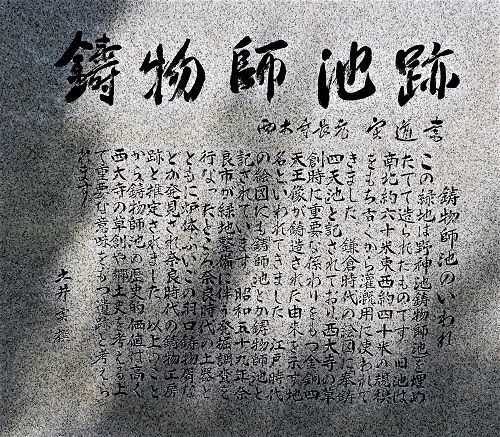 鋳物師池跡
西大寺長老 実道書
鋳物師池のいわれ
この緑地は野神池鋳物師池を埋め
たてて造られたものです 旧池は
南北約六十米東西約四十米の規模
をもち古くから灌漑用に使われて
きました 鎌倉時代の絵図に奉鋳
四天池と記されており西大寺の草
創時に重要な係わりをもつ金銅四
天王像が鋳造された由来を示す地
名といわれてきました 江戸時代
の絵図にも鋳師池とか鋳物師池と
記されています 昭和五十九年奈
良市が緑地整備に伴う発掘調査を
行なったところ奈良時代の土器と
ともに炉体ふいごの羽口鋳物滓な
どが発見され奈良時代の鋳物工房
跡と推定されました 以上のこと
から鋳物師池の歴史的価値は高く
西大寺の草創や郷土史を考える上
で重要な意味をもつ遺跡と考えら
れます
土井実